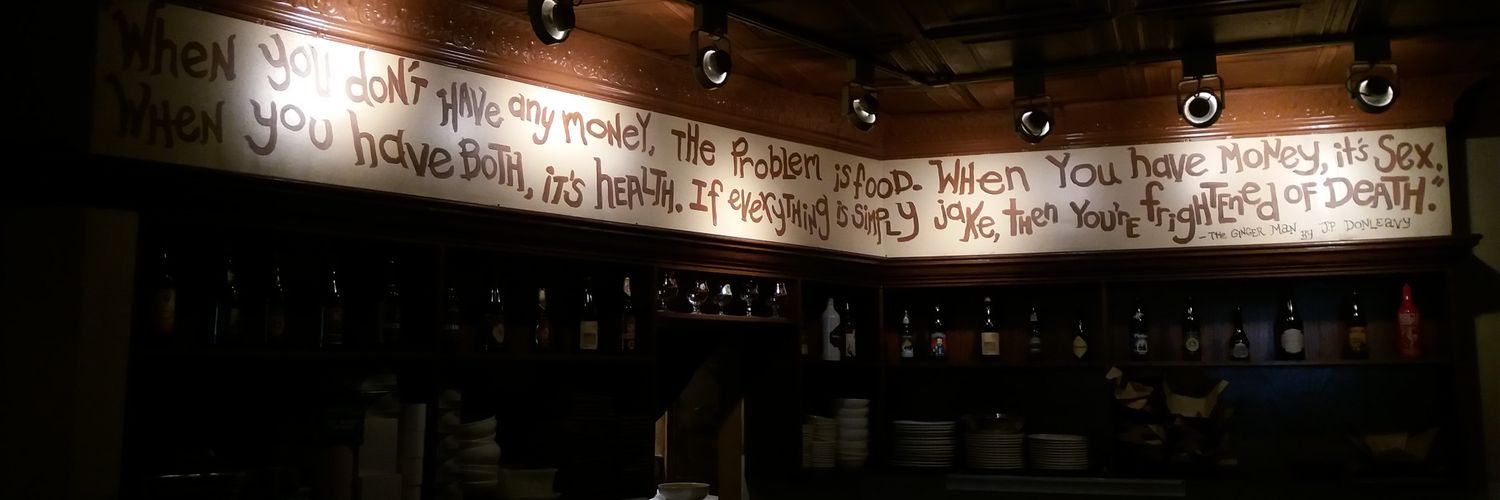 "When you don't HAVE any MONEY, THE Problem is fOOD. WHen You have MONey, it's Sex.
WHEN you have BOTH, it's HEALTH. If everyTHING is SIMPLY jaKe, then You're frigHTENed OF DeATH."
- THE GINGER MAN By J.P. DONLEAVY